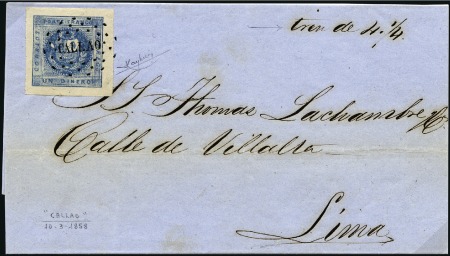 → tren de 4.¼.
CORREOS
CALLAO
UN DINERO
S. S. Thomas Lachambre y Cª
Calle de Villalta
Lima
"CALLAO"
10-3-1858